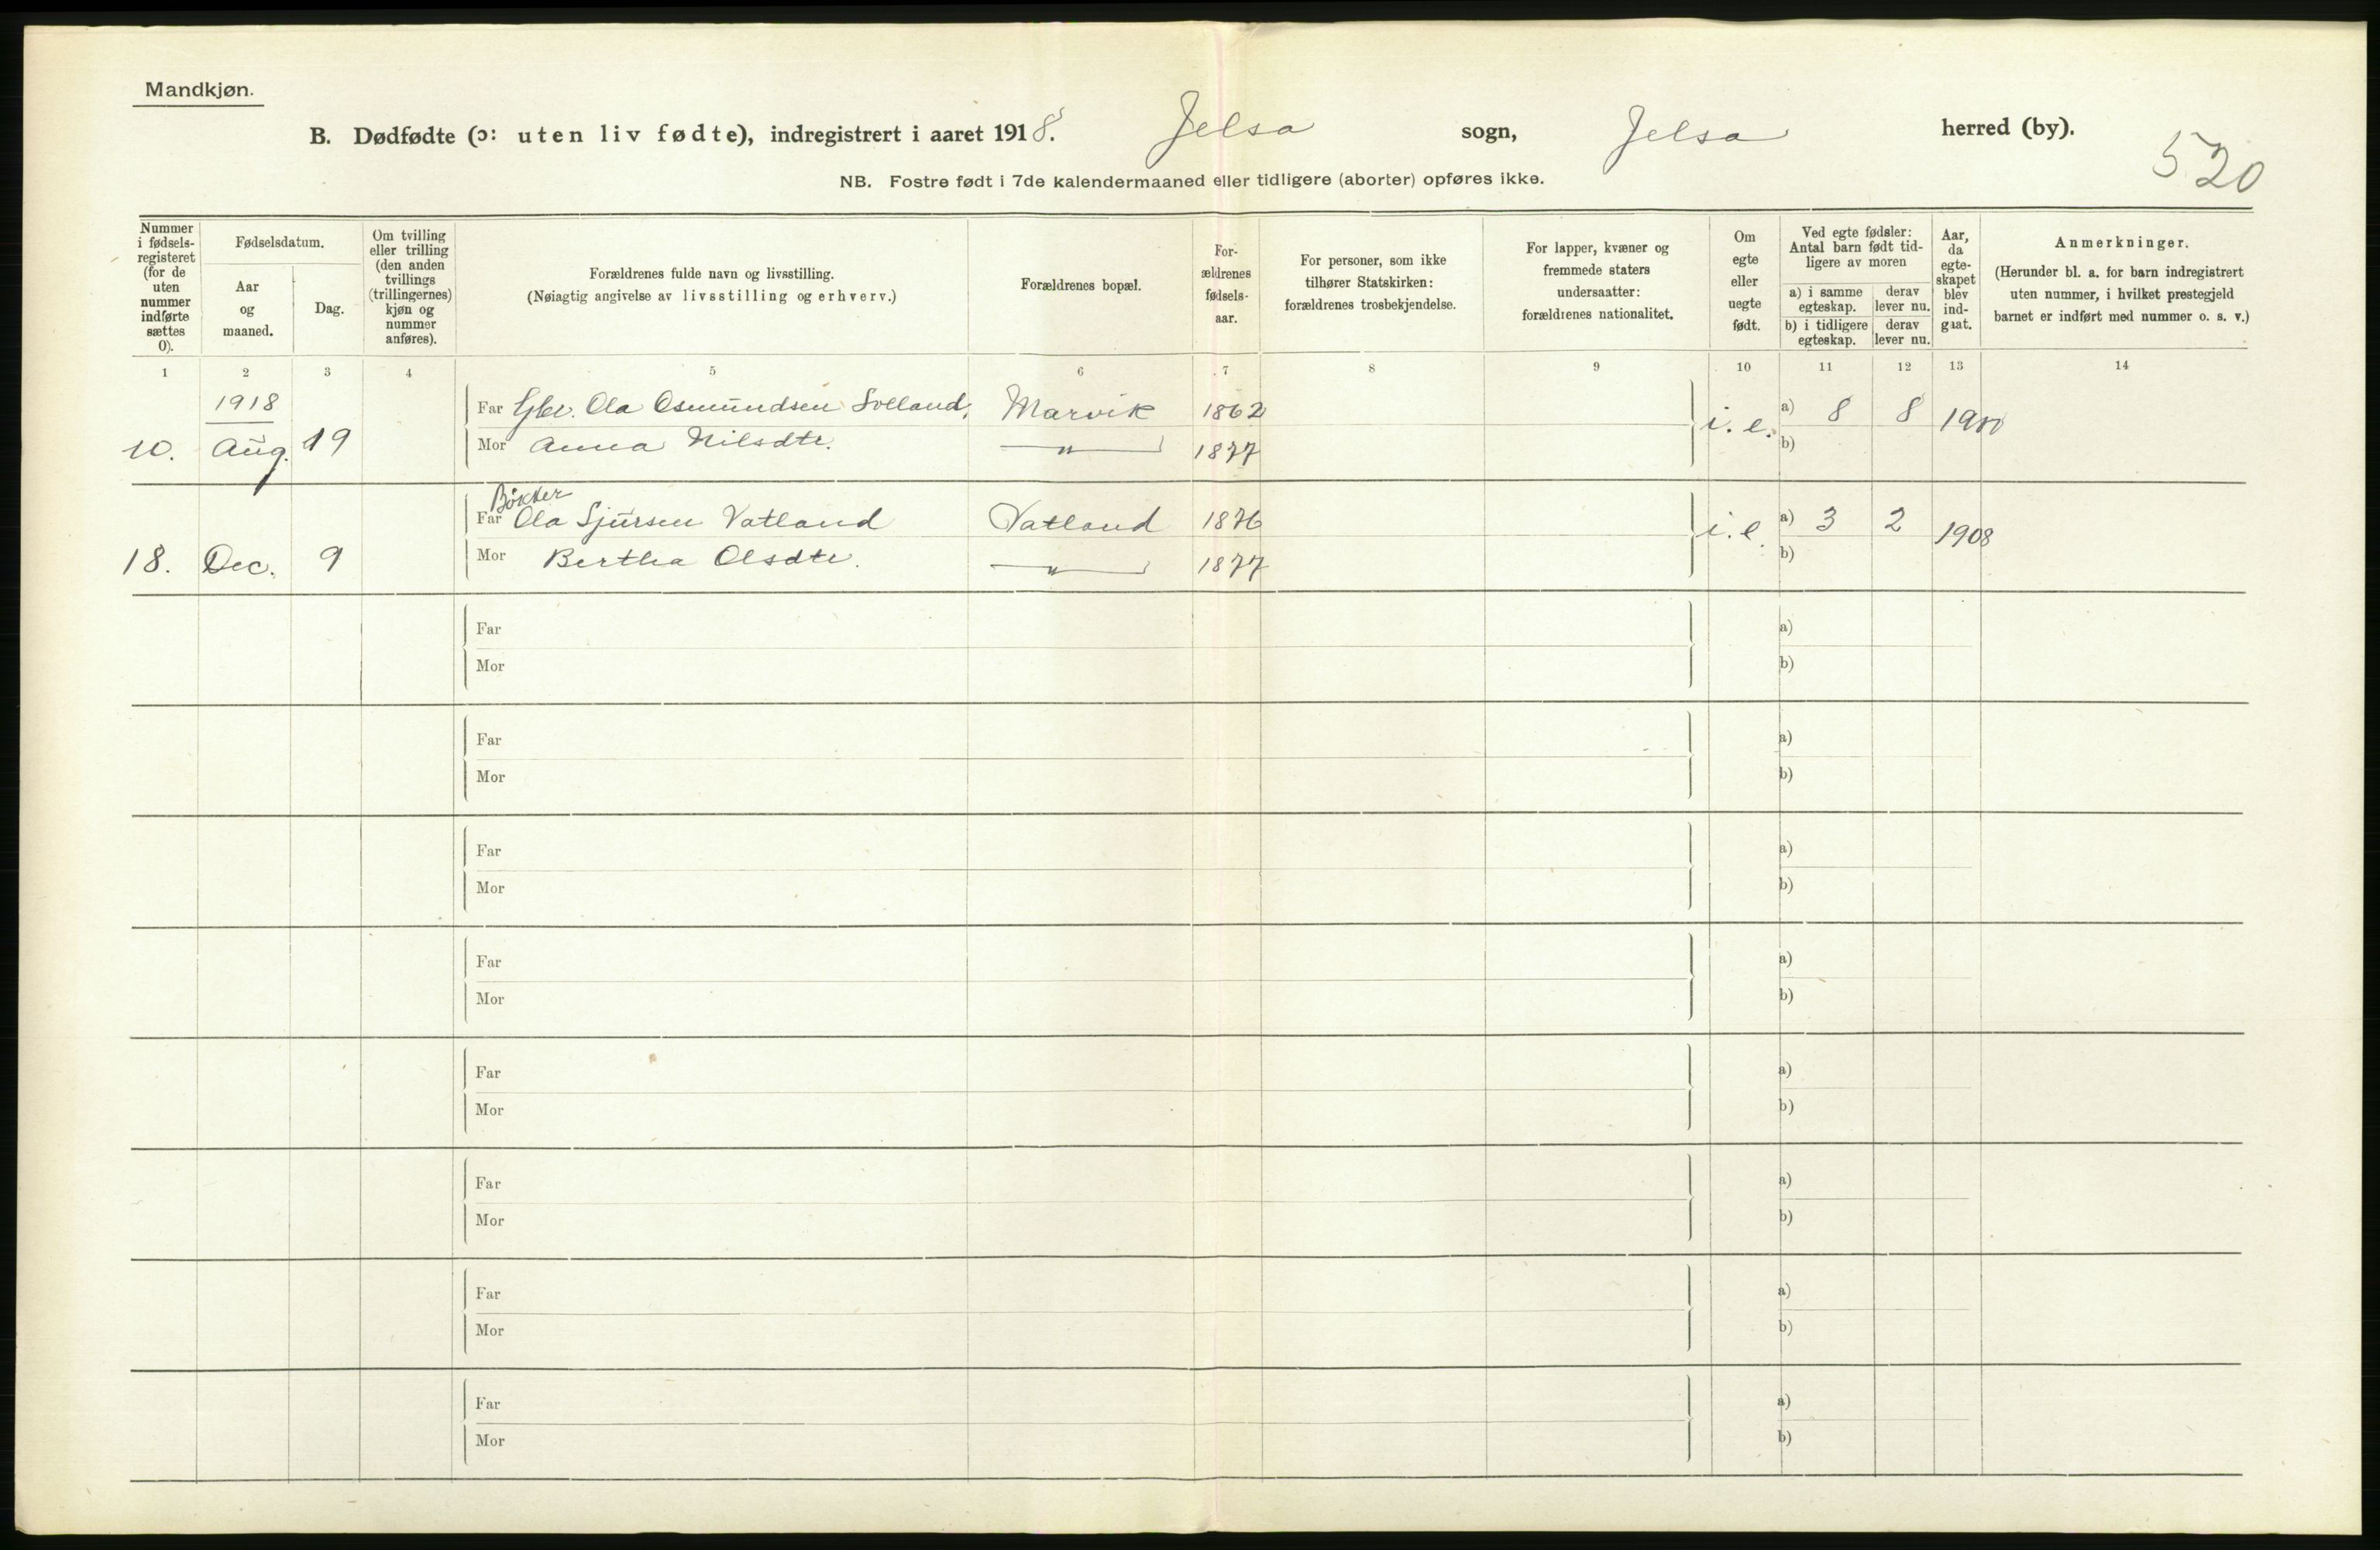 Mandkjøn.
B. Dødfødte (ɔ: uten liv fødte), indregistrert i aaret 1918. Jelsa sogn, Jelsa herred (by).
520
NB. Fostre født i 7de kalendermaaned eller tidligere (aborter) opføres ikke.
Nummer i fødsels-registeret (for de uten nummer indførte sættes 0).
Fødselsdatum.
Aar og maaned.
Dag.
Om tvilling eller trilling (den anden tvillings (trillingernes) kjøn og nummer anføres).
Forældrenes fulde navn og livsstilling.
(Nøiagtig angivelse av livsstilling og erhverv.)
Forældrenes bopæl.
For-ældrenes fødsels-aar.
For personer, som ikke tilhører Statskirken: forældrenes trosbekjendelse.
For lapper, kvæner og fremmede staters undersaatter: forældrenes nationalitet.
Om egte eller uegte født.
Ved egte fødsler: Antal barn født tid-ligere av moren
a) i samme egteskap. derav lever nu.
b) i tidligere egteskap. derav lever nu.
Aar, da egte-skapet blev ind-gaat.
Anmerkninger.
(Herunder bl. a. for barn indregistrert uten nummer, i hvilket prestegjeld barnet er indført med nummer o. s. v.)
1 2 3 4 5 6 7 8 9 10 11 12 13 14
1918
Far Gbr. Ola Osmundsen Solland, Marvik 1862 i. e. a) 8 8 1900
10. Aug. 19 Mor Anna Nilsdtr. " 1877 b)
Bøkker
Far Ola Sjursen Vatland Vatland 1876 i. e. a) 3 2 1908
18. Dec. 9 Mor Bertha Olsdtr. " 1877 b)
Far a)
Mor b)
Far a)
Mor b)
Far a)
Mor b)
Far a)
Mor b)
Far a)
Mor b)
Far a)
Mor b)
Far a)
Mor b)
Far a)
Mor b)